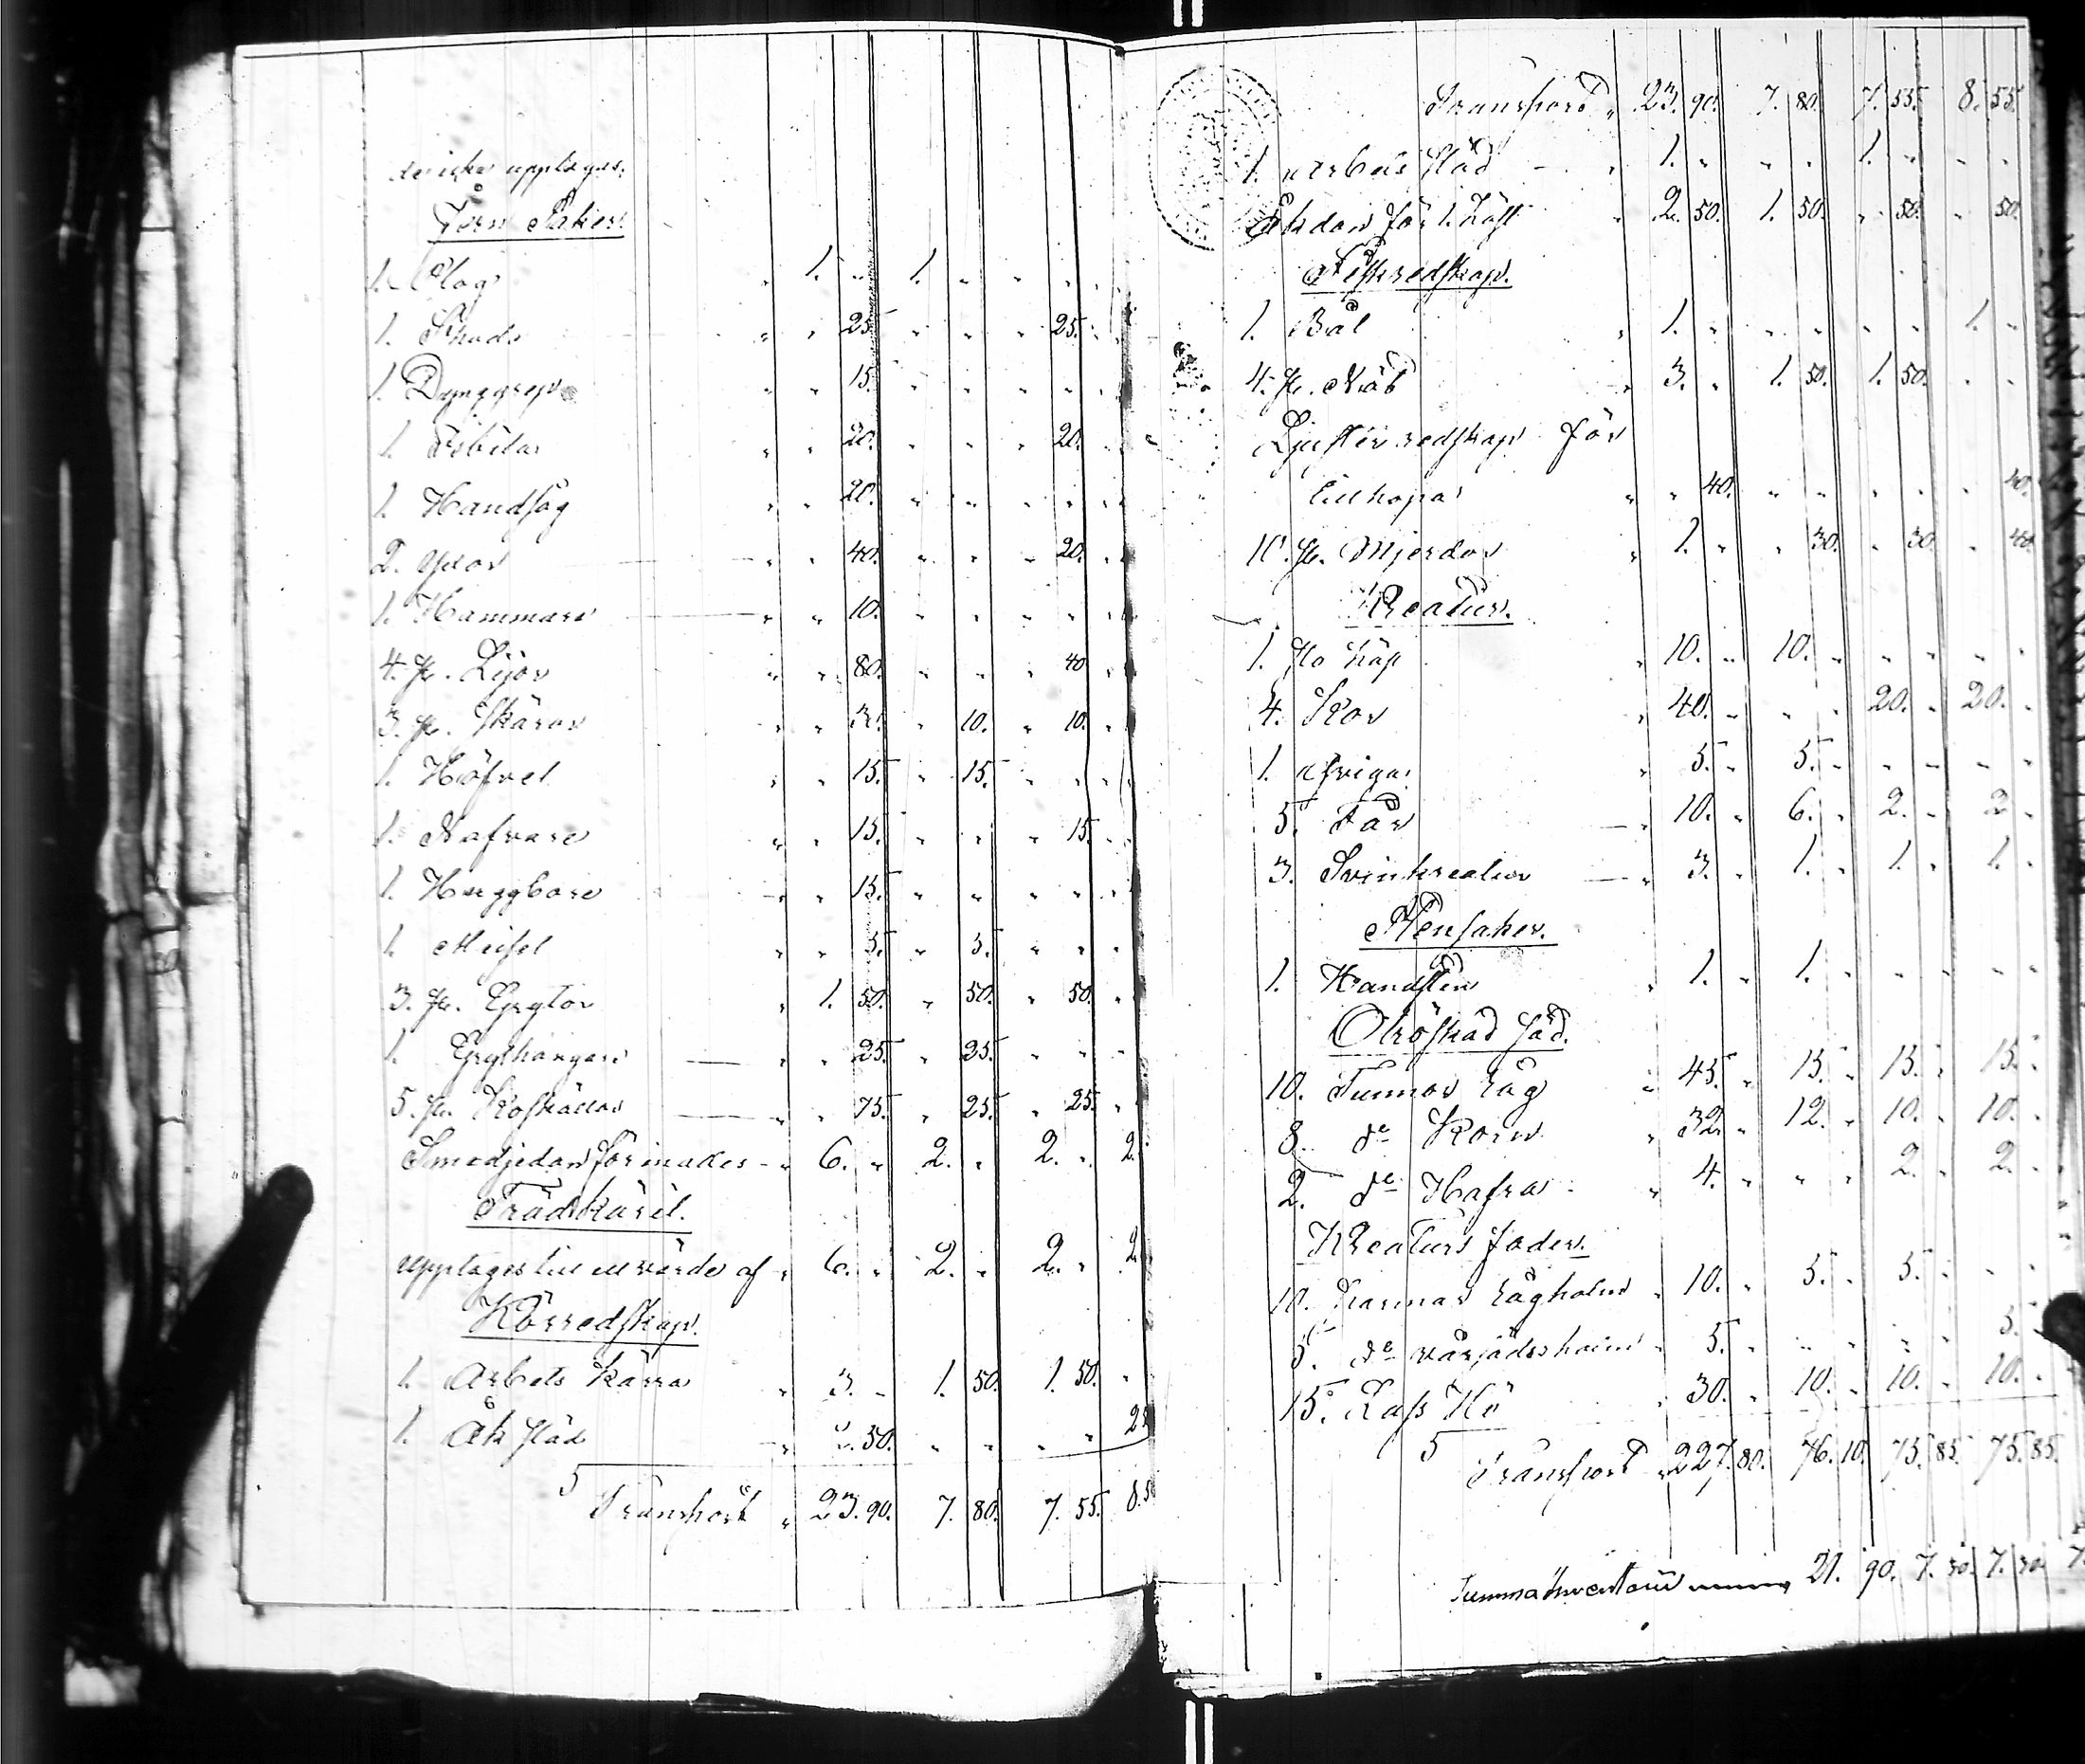 de icke upptagas.
Jern Saker.
1. Plog " 1. " 1. " " "
1. Spade " " 25. " " " 25.
1. Dynggrep " " 15. " " " "
1. Bilar " " 20. " " " 20.
1. Handsåg " " 20. " " " "
2. Yxor " " 40. " " " 20.
1. Hammare " " 10. " " " "
4. st. Lijor " " 80. " " " 40
3. st. Skäror " " " 10. " 10.
1. Höfvel " " 15. " 15. " "
1. Nafvare " " 15. " " " 15.
1. Huggbare " " 15. " " " "
1. Meisel " " 5. " 5. " "
3. st. Grytor " 1. 50. " 50. " 50.
1. Grythängare " " 25. " 25. " "
5. st. Koskällor " " 75. " 25. " 25.
Smedjedon för inalles " 6. " 2. " 2. " 2.
Trädkäril.
upptages till ett värde af " 6. " 2. " 2. " 2
Körredskap.
1. Arbets kärra " 3. " 1. 50. 1. 50. "
1. Åk släde " 2. 50. " " " " 2.
Transport " 23. 90. 7. 80. 7. 55. 8.5
Transport " 23. 90. 7. 80. 7. 55. 8. 55.
1. Arbets släd " 1. " " " 1. " " "
Åkdon för 1. häst " 2. 50. 1. 50. " 50. " 50.
Fiskredskap.
1. Båt " 1. " " " " " 1. "
4. st. Nät " 3. " 1. 50. 1. 50. " "
Ljuster redskap för
tillhopa " " 40. " " " " " 40.
10. st. Mjerdor " 1. " " 30. " 30 " 40
Kreatur.
1. Sto häst " 10. " 10. " " " " "
4. Kor " 40. " " " 20. " 20. "
1. qviga " 5. " 5. " " " " "
5. Får " 10. " 6. " 2. " 2 "
3. Svinkreatur " 3. " 1. " 1. " 1. "
Stensaker.
1. Handsten " 1. " 1. " " " " "
Otröskad säd.
10. Tunnor råg " 45. " 15. " 15. " 15. "
8. do Korn " 32 " 12. " 10. " 10. "
2. do Hafra " 4. " " " 2. " 2. "
Kreaturs foder.
10. Parmar råghalm " 10. " 5. " 5. " " "
5. do vårsädeshalm " 5. " " " " " 5. "
15. Lass Hö " 30. " 10. " 10. " 10. "
Transport " 227. 80. 76. 10. 75. 85. 75. 85.
Summa 21. 90. 7. 30. 7. 30. 7.